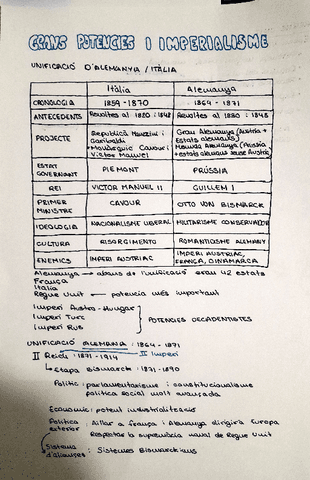 GRANS POTÈNCIES I IMPERIALISME
UNIFICACIÓ D'ALEMANYA / ITÀLIA
Itàlia Alemanya
CRONOLOGIA 1859-1870 1864-1871
ANTECEDENTS Revoltes al 1830 i 1848 Revoltes al 1830 i 1848
PROJECTE República Manzini i Garibaldi
Monàrquic Cavour i Victor Manuel
Gran Alemanya (Àustria + Estats alemanys)
Alemanya (Prússia + estats alemanys sense Àustria)
ESTAT GOVERNANT PIEMONT PRÚSSIA
REI VICTOR MANUEL II GUILLEM I
PRIMER MINISTRE CAVOUR OTTO VON BISMARCK
IDEOLOGIA NACIONALISME LIBERAL MILITARISME CONSERVADOR
CULTURA RISORGIMENTO ROMANTICISME ALEMANY
ENEMICS IMPERI AUSTRÍAC IMPERI AUSTRÍAC, FRANÇA, DINAMARCA
Alemanya → abans de l'unificació eran 42 estats
França
Itàlia
Regne Unit → potència més important
Imperi Austro-Hungar
Imperi Turc
Imperi Rus
POTÈNCIES DECADENTISTES
UNIFICACIÓ ALEMANIA: 1864-1871
II Reich: 1871-1914 II Imperi
Etapa Bismarck: 1871-1890
Polític: parlamentarisme i constitucionalisme
política social molt avançada
Econòmic: potent industrialització
Política exterior: Aïllar a frança i Alemanya dirigirà Europa
Respectar la supremàcia naval de Regne Unit
Sistema d'aliances: Sistemes Bismarckians